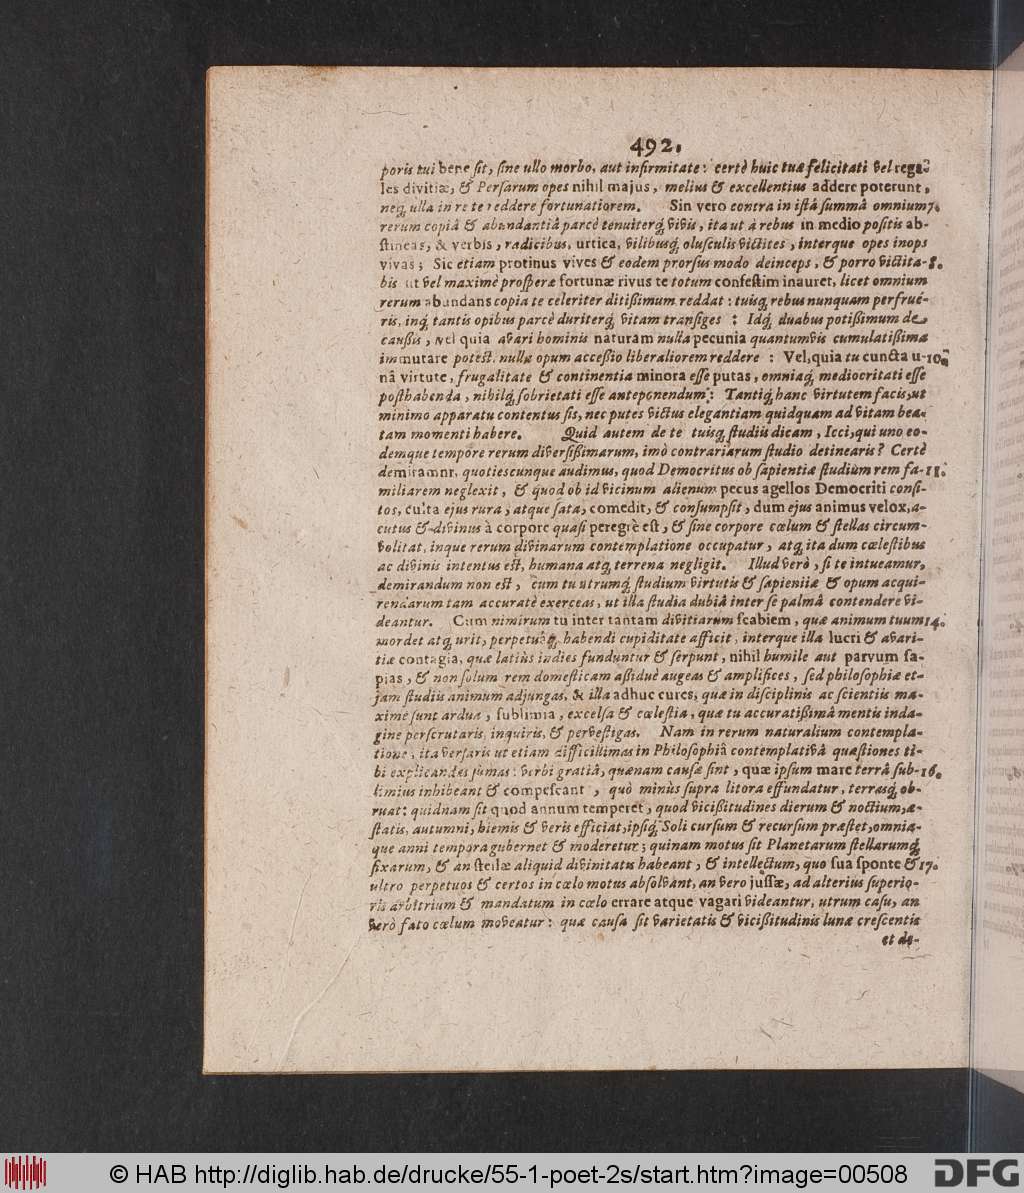 492.
poris tui bene sit, sine ullo morbo, aut infirmitate: certè huic tuæ felicitati vel rega-
les divitiæ, & Persarum opes nihil majus, melius & excellentius addere poterunt,
neq; ulla in re te reddere fortunatiorem. Sin vero contra in istâ summâ omnium 7.
rerum copiâ & abundantiâ parcè tenuiterq; vivis, ita ut à rebus in medio positis ab-
stineas, & verbis, radicibus, urtica, vilibusq; olusculis victites, interque opes inops
vivas; Sic etiam protinus vives & eodem prorsus modo deinceps, & porro victita- 8.
bis ut vel maximè prosperæ fortunæ rivus te totum confestim inauret, licet omnium
rerum abundans copia te celeriter ditißimum reddat: tuisq; rebus nunquam perfrué-
ris, inq; tantis opibus parcè duriterq; vitam transiges: Idq; duabus potißimum de
caußis, vel quia avari hominis naturam nulla pecunia quantumvis cumulatißima
immutare potest, nulla opum acceßio liberaliorem reddere: Vel, quia tu cuncta u- 10.
nâ virtute, frugalitate & continentia minora esse putas, omniaq; mediocritati esse
posthabenda, nihilq; sobrietati esse anteponendum: Tantiq; hanc virtutem facis, ut
minimo apparatu contentus sis, nec putes victus elegantiam quidquam ad vitam bea-
tam momenti habere. Quid autem de te tuisq; studiis dicam, Icci, qui uno eo-
demque tempore rerum diversißimarum, imò contrariarum studio detinearis? Certè
demiramnr, quotiescunque audimus, quod Democritus ob sapientiæ studium rem fa- 11.
miliarem neglexit, & quod ob id vicinum alienum pecus agellos Democriti consi-
tos, culta ejus rura, atque sata, comedit, & consumpsit, dum ejus animus velox, a-
cutus & divinus à corpore quasi peregrè est, & sine corpore cœlum & stellas circum-
volitat, inque rerum divinarum contemplatione occupatur, atq; ita dum cœlestibus
ac divinis intentus est, humana atq; terrena negligit. Illud verò, si te intueamur,
demirandum non est, cum tu utrumq; studium virtutis & sapieniiæ & opum acqui-
rendarum tam accuratè exerceas, ut illa studia dubiâ inter se palmâ contendere vi-
deantur. Cum nimirum tu inter tantam divitiarum scabiem, quæ animum tuum 14.
mordet atq; urit, perpetuâq; habendi cupiditate afficit, interque illa lucri & avari-
tiæ contagia, quæ latiùs indies funduntur & serpunt, nihil humile aut parvum sa-
pias, & non solum rem domesticam aßiduè augeas & amplifices, sed philosophiæ et-
jam studiis animum adjungas, & illa adhuc cures, quæ in disciplinis ac scientiis ma-
ximè sunt ardua, sublimia, excelsa & cœlestia, quæ tu accuratißimâ mentis inda-
gine perscrutaris, inquiris, & pervestigas. Nam in rerum naturalium contempla-
tione, ita versaris ut etiam difficillimas in Philosophiâ contemplativâ quæstiones ti-
bi explicandas sumas: verbi gratiâ, quænam causæ sint, quæ ipsum mare terrâ sub- 16.
limius inhibeant & compescant, quò minùs supra litora effundatur, terrasq; ob-
ruat: quidnam sit quod annum temperet, quod vicißitudines dierum & noctium, æ-
statis, autumni, hiemis & veris efficiat, ipsiq; Soli cursum & recursum præstet, omnia-
que anni tempora gubernet & moderetur; quinam motus sit Planetarum stellarumq;
fixarum, & an stellæ aliquid divinitatis habeant, & intellectum, quo sua sponte & 17.
ultro perpetuos & certos in cœlo motus absolvant, an vero jussæ, ad alterius superio-
ris arbitrium & mandatum in cœlo errare atque vagari videantur, utrum casu, an
verò fato cœlum moveatur: quæ causa sit varietatis & vicißitudinis lunæ crescentis
et de-
© HAB http://diglib.hab.de/drucke/55-1-poet-2s/start.htm?image=00508
DFG